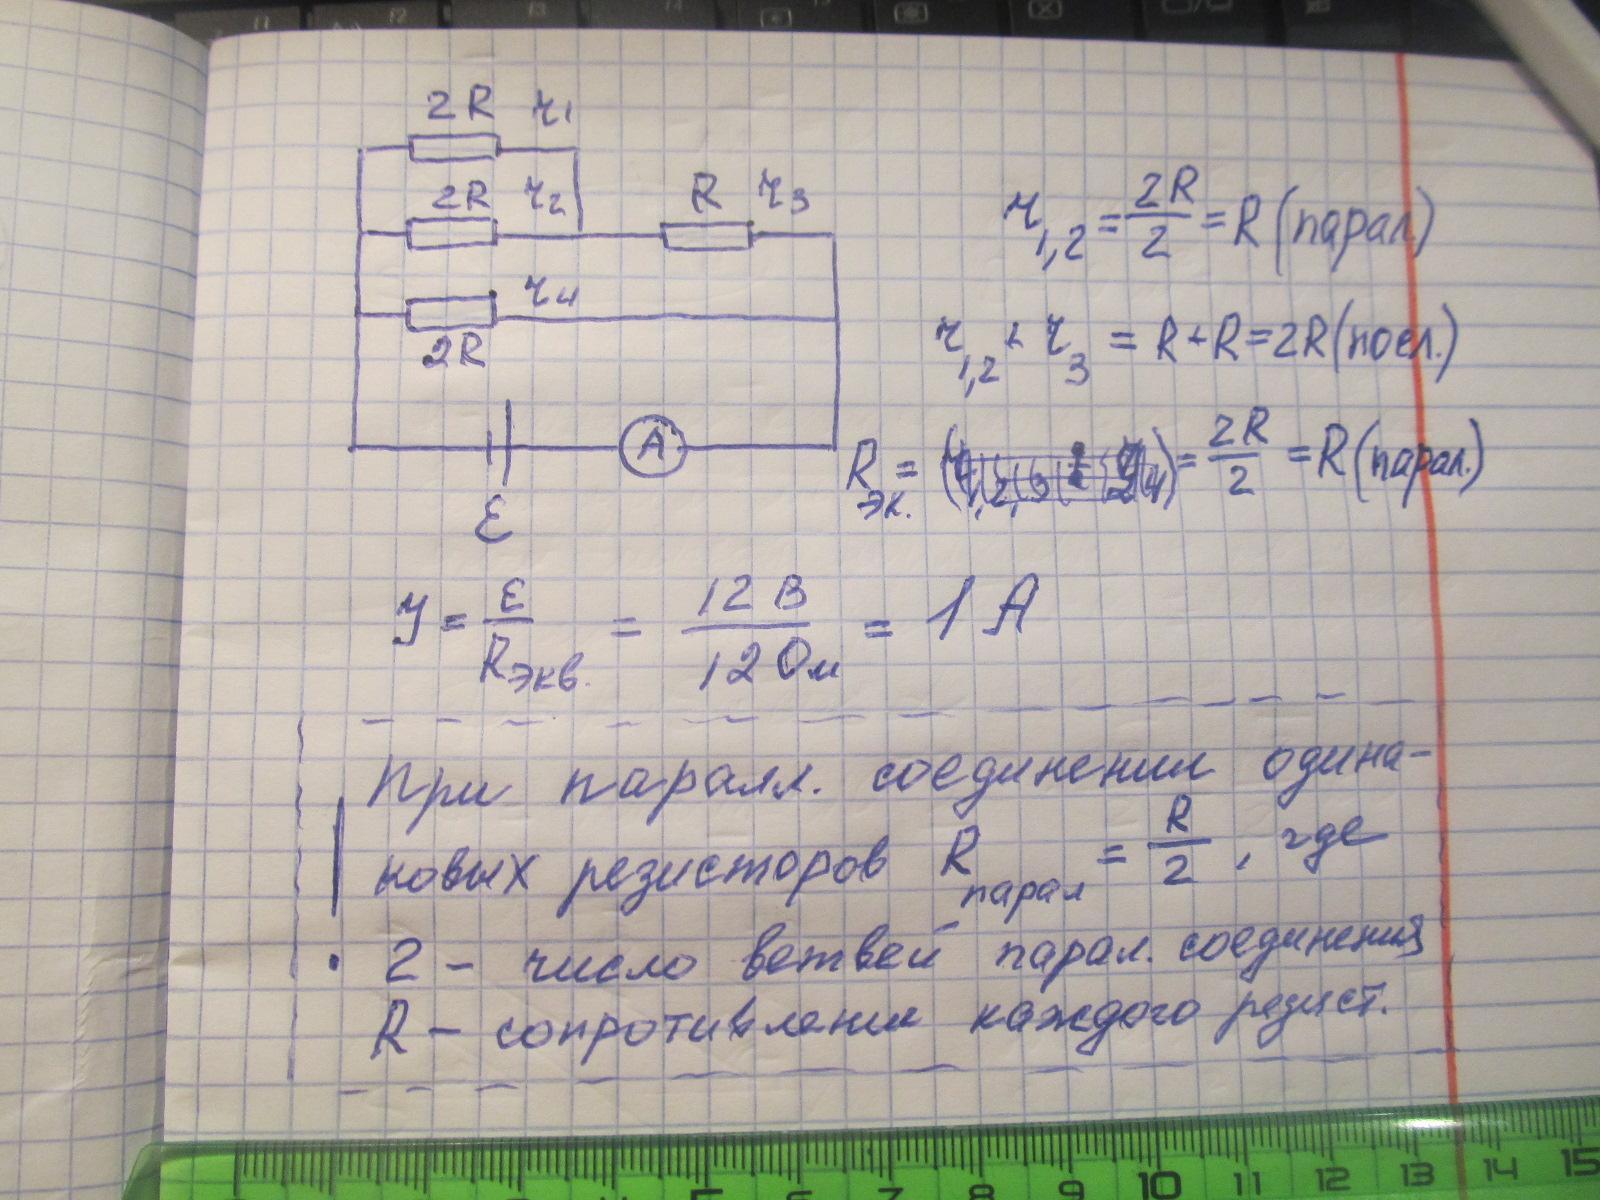 2R r1
2R r2 R r3
r4
2R
A
ε
r1,2 = 2R/2 = R (парал)
r1,2 + r3 = R + R = 2R (посл.)
Rэк. = = 2R/2 = R (парал.)
У = ε/Rэкв. = 12 В/12 Ом = 1 А
При паралл. соединении одина-
новых резисторов Rпарал = R/2, где
2 - число ветвей парал. соединения
R - сопротивление каждого резист.
5 7 8 9 10 11 12 13 14 15